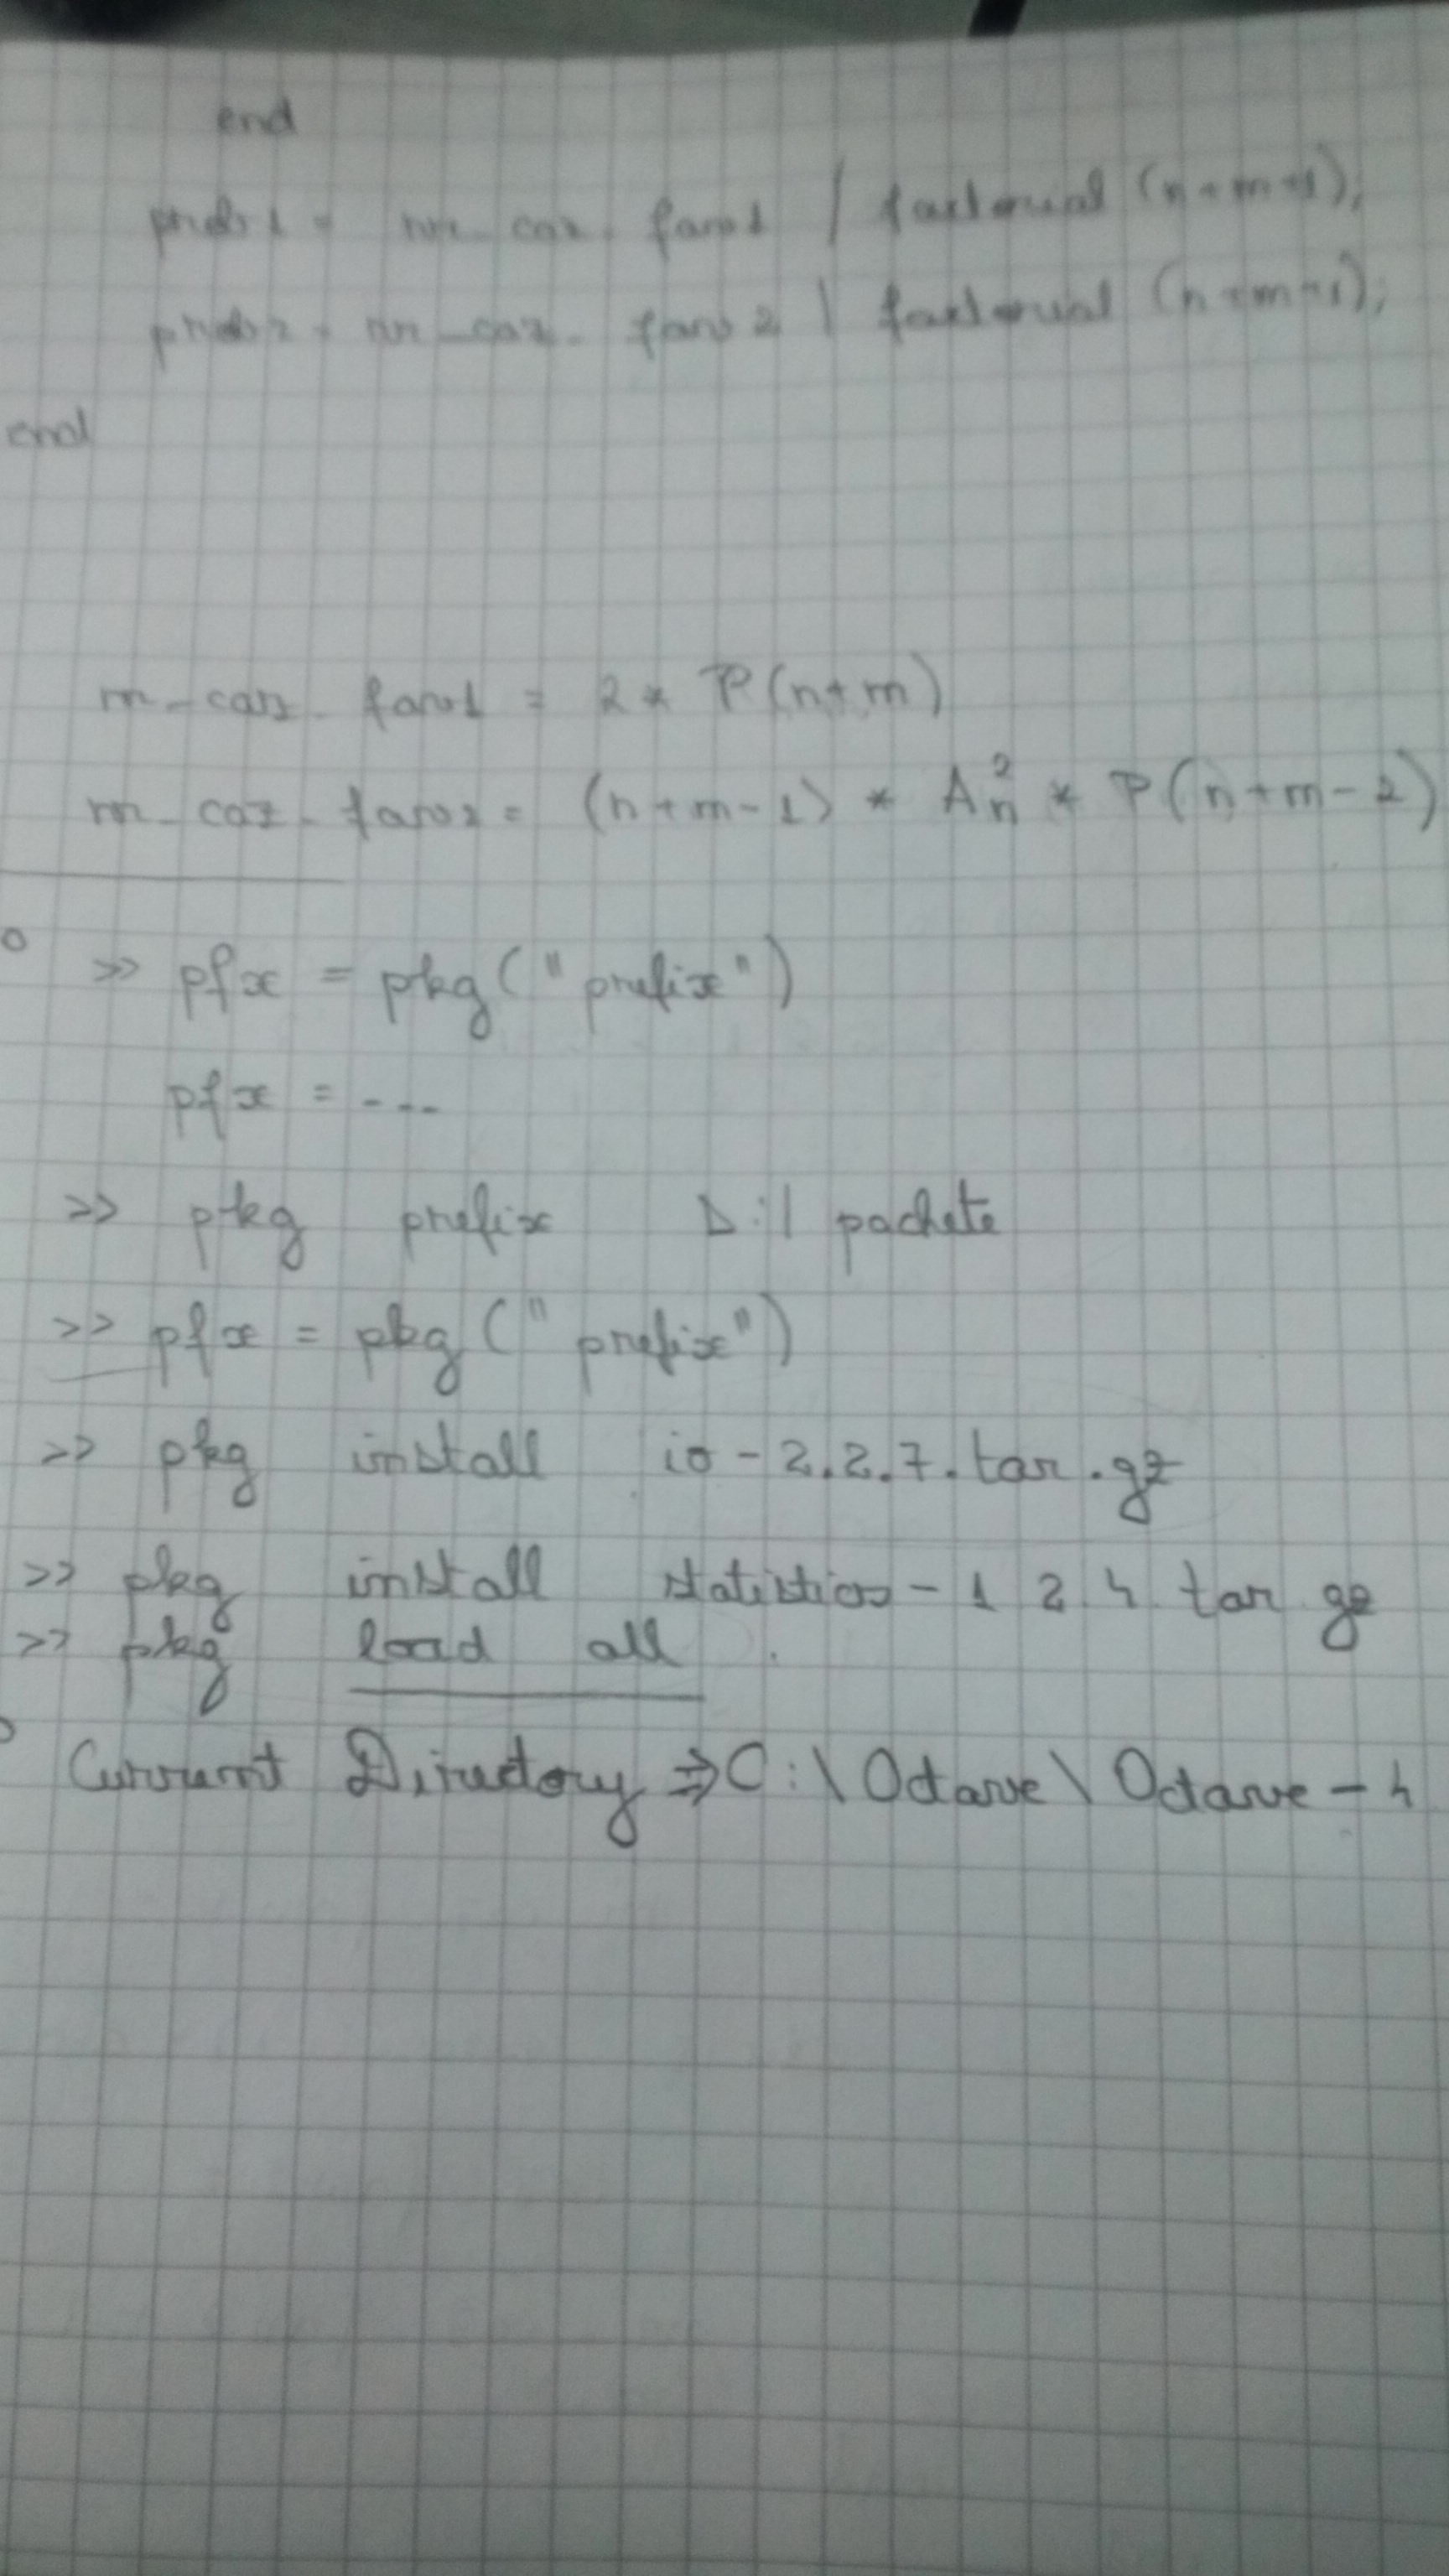 end
prob1 = nr_caz_fav1 / factorial (n+m+1);
prob2 = nr_caz_fav2 / factorial (n+m+1);
end
nr_caz_fav1 = 2 * P(n+m)
nr_caz_fav2 = (n+m-1) * A²ₙ * P(n+m-2)
>> pfx = pkg("prefix")
pfx = ---
>> pkg prefix D:\ pachete
>> pfx = pkg("prefix")
>> pkg install io-2.2.7.tar.gz
>> pkg install statistics-1 2 4 tar gz
>> pkg load all
Current Directory => C:\Octave\Octave-4